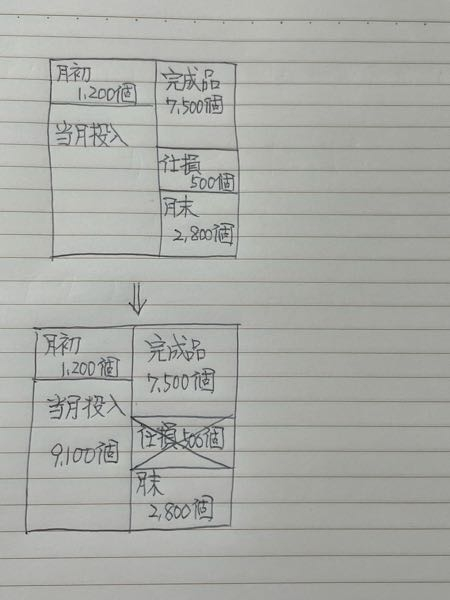 月初
1,200個
完成品
7,500個
当月投入
仕損
500個
月末
2,800個
⇓
月初
1,200個
完成品
7,500個
当月投入
9,100個
仕損 500個
月末
2,800個